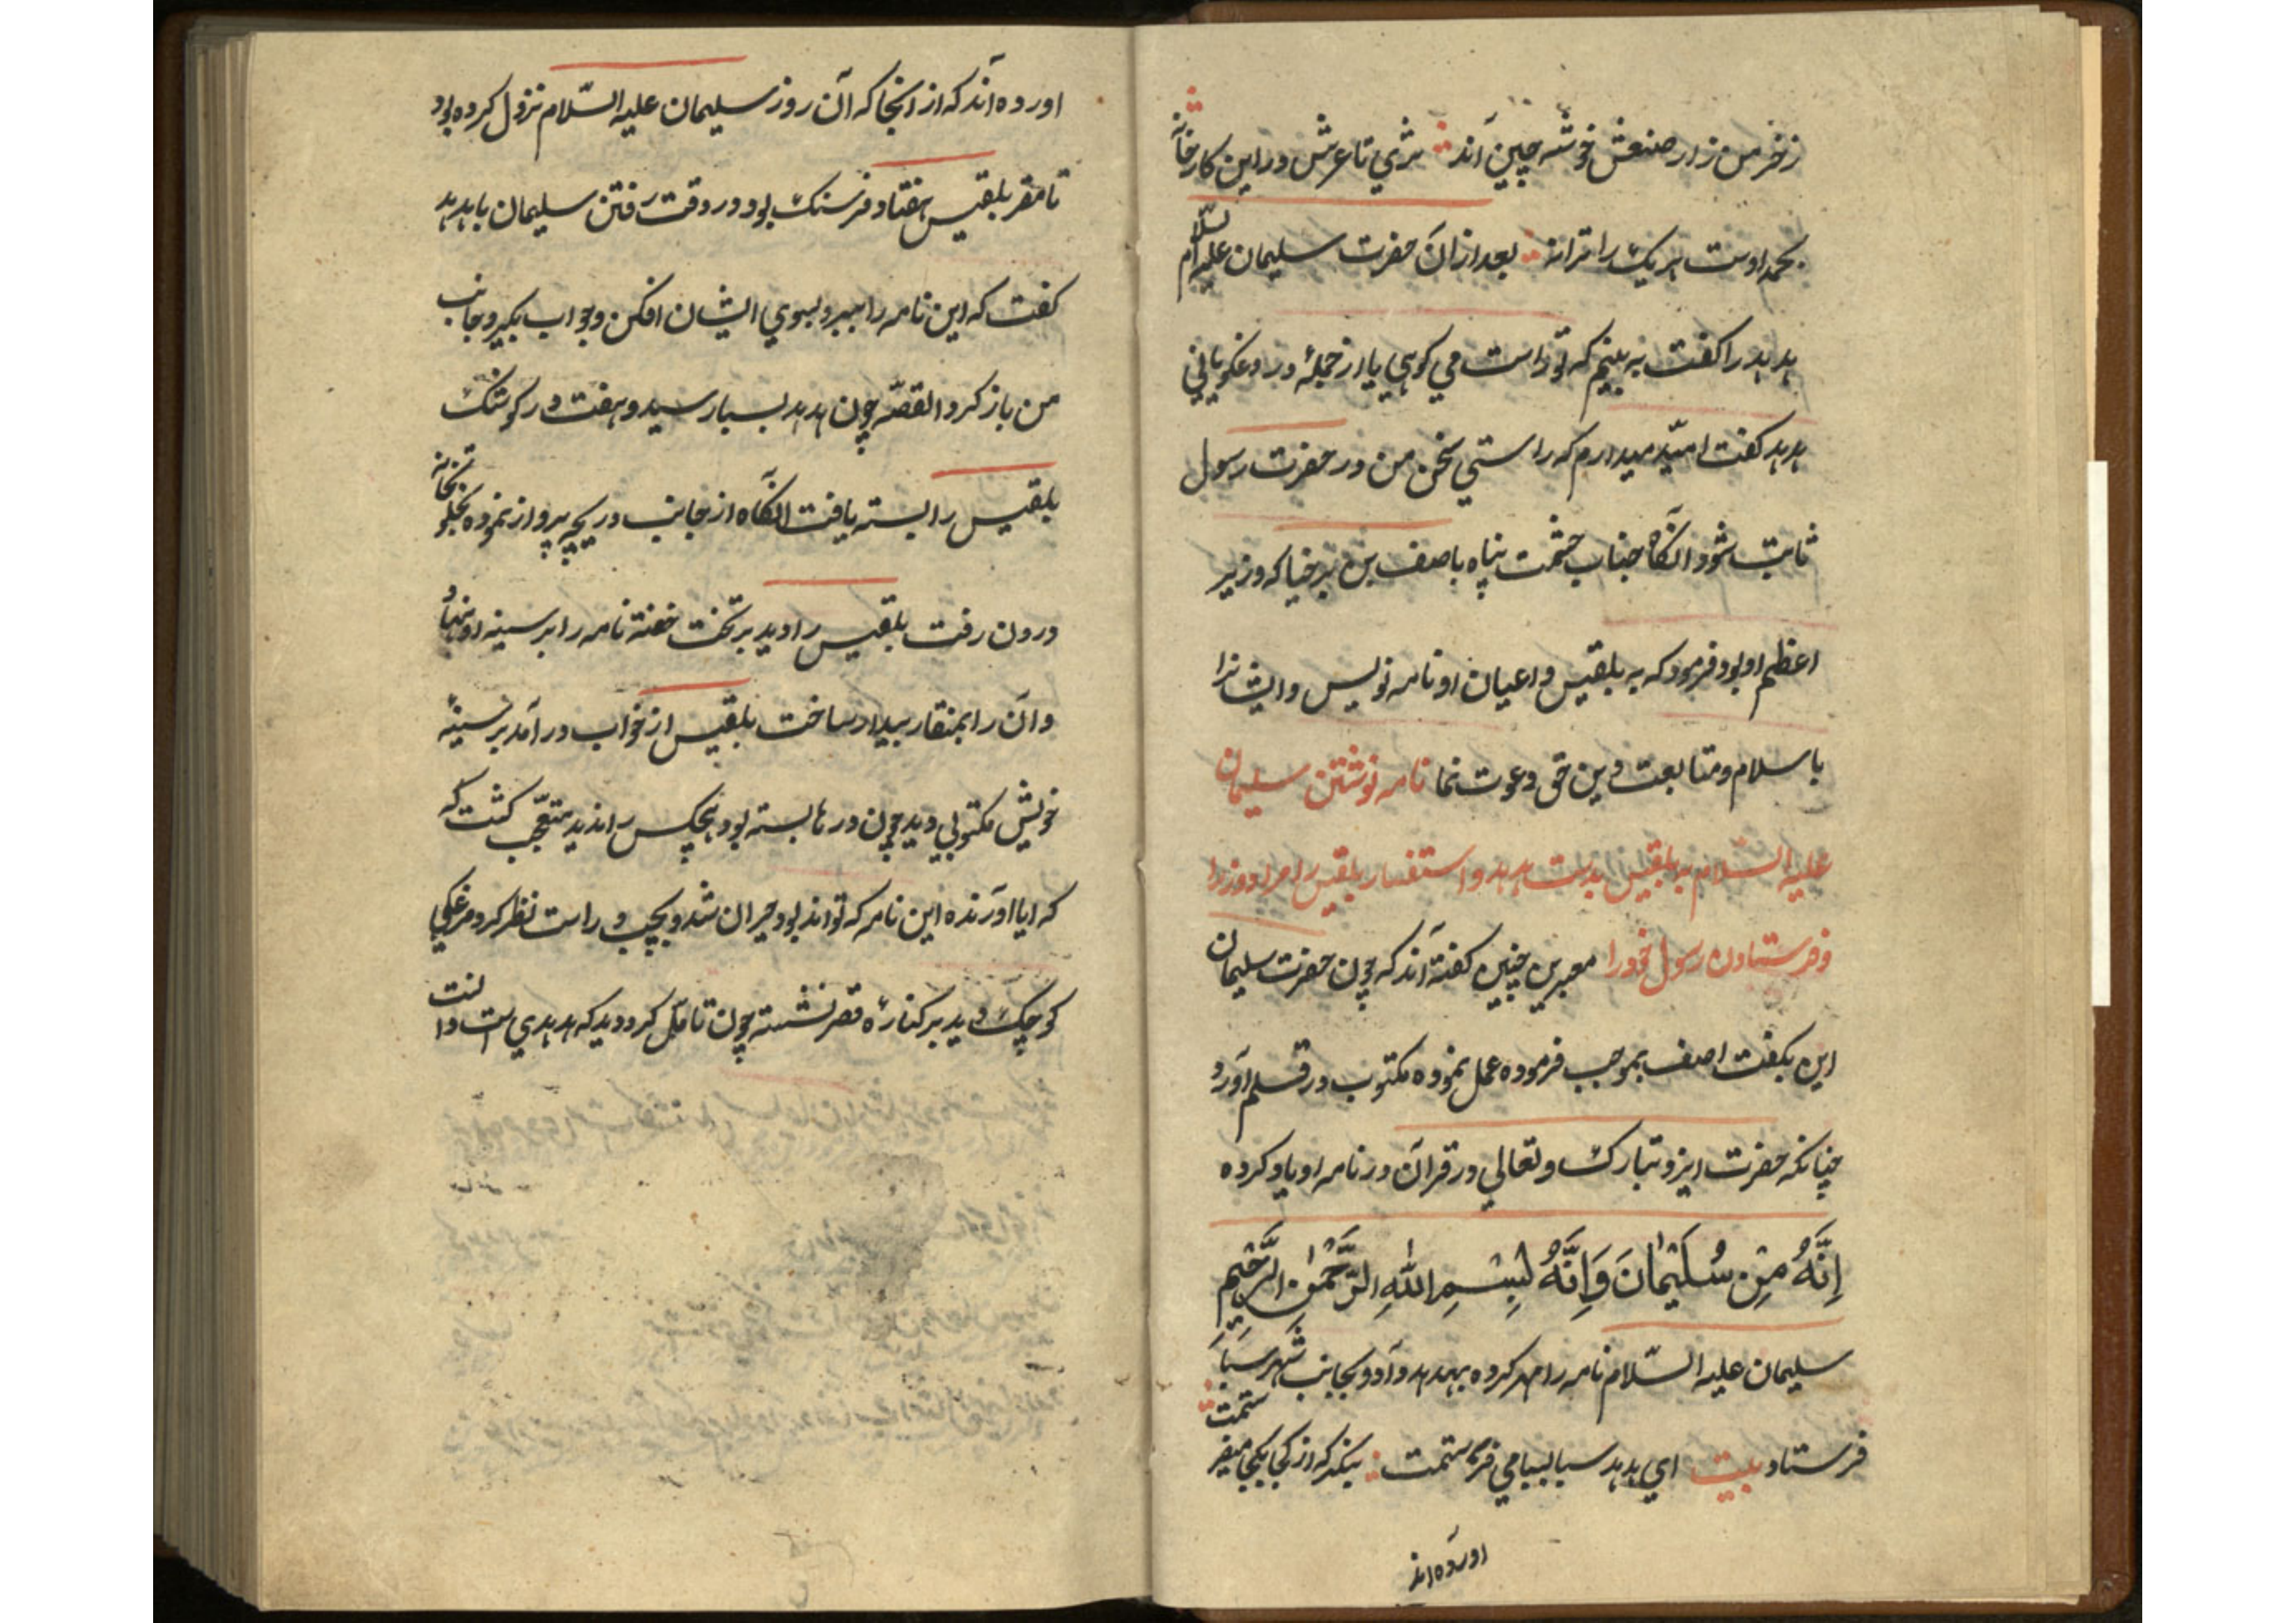 زخرمن زار صنعش خوشه چین اند ثری تا عرش در این کارخانه
بحمد اوست هر یک را ترانه بعد از آن حضرت سلیمان علیه السلام
هدهد را کفت به بینم که تو راست می کوهی یا از جملهٔ دروغکویانی
هدهد کفت امّید میدارم که راستی سخن من در حضرت رسول
ثابت شود آنکاه جناب حشمت پناه باصف بن برخیا که وزیر
اعظم او بود فرمود که به بلقیس و اعیان او نامه نویس و ایشانرا
باسلام و متابعت دین حق دعوت نما نامه نوشتن سلیمان
علیه السلام به بلقیس بدست هدهد و استفسار بلقیس امرا و وزرا
و فرستادن رسول خود را معبرین چنین کفته آند که چون حضرت سلیمان
این بکفت اصف بموجب فرموده عمل نموده مکتوب در قلم آورد
چنانکه حضرت ایزد تبارک و تعالی در قرآن در نامه او یاد کرده
اِنَّهُ مِن سُلَیْمٰانَ وَاِنَّهُ لبِسْمِ اللهِ الرَّحْمٰنِ الرَّحِیْمِ
سلیمان علیه السّلام نامه را مهر کرده بهدهد داد و بجانب شهر سَبَا
فرستاد بیت ای هدهد سبا بسبا می فرستمت بنکر که از کجا بکجا میفرستمت
اورده اند
اورده آند که از انجا که آن روز سلیمان علیه السّلام نزول کرده بود
تا مقر بلقیس هفتاد فرسنک بود و در وقت رفتن سلیمان با هدهد
کفت که این نامه را ببر و بسوی ایشان افکن و جواب بکیر و بجانب
من باز کرد القصّه چون هدهد بسبا رسید و هفت در کوشک
بلقیس را بسته یافت آنکاه از جانب دریچه پرواز نموده بخلوتخانه
درون رفت بلقیس را دید بر تخت خفته نامه را بر سینه او نهاد
و آن را بمنقار بیدار ساخت بلقیس از خواب در آمد بر سینهٔ
خویش مکتوبی دید چون درها بسته بود هیچکس را ندید متعجّب کشت که
که ایا اورنده این نامه که تواند بود حیران شد و بچپ و راست نظر کرد مرغکی
کوچک دید بر کنارهٔ قصر نشسته چون تامّل کرد دید که هدهدی است دانست